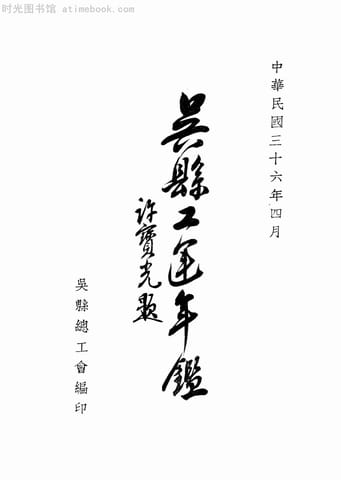 时光图书馆 atimebook.com
中華民國三十六年四月
吳縣工運年鑑
許寶光題
吳縣總工會編印